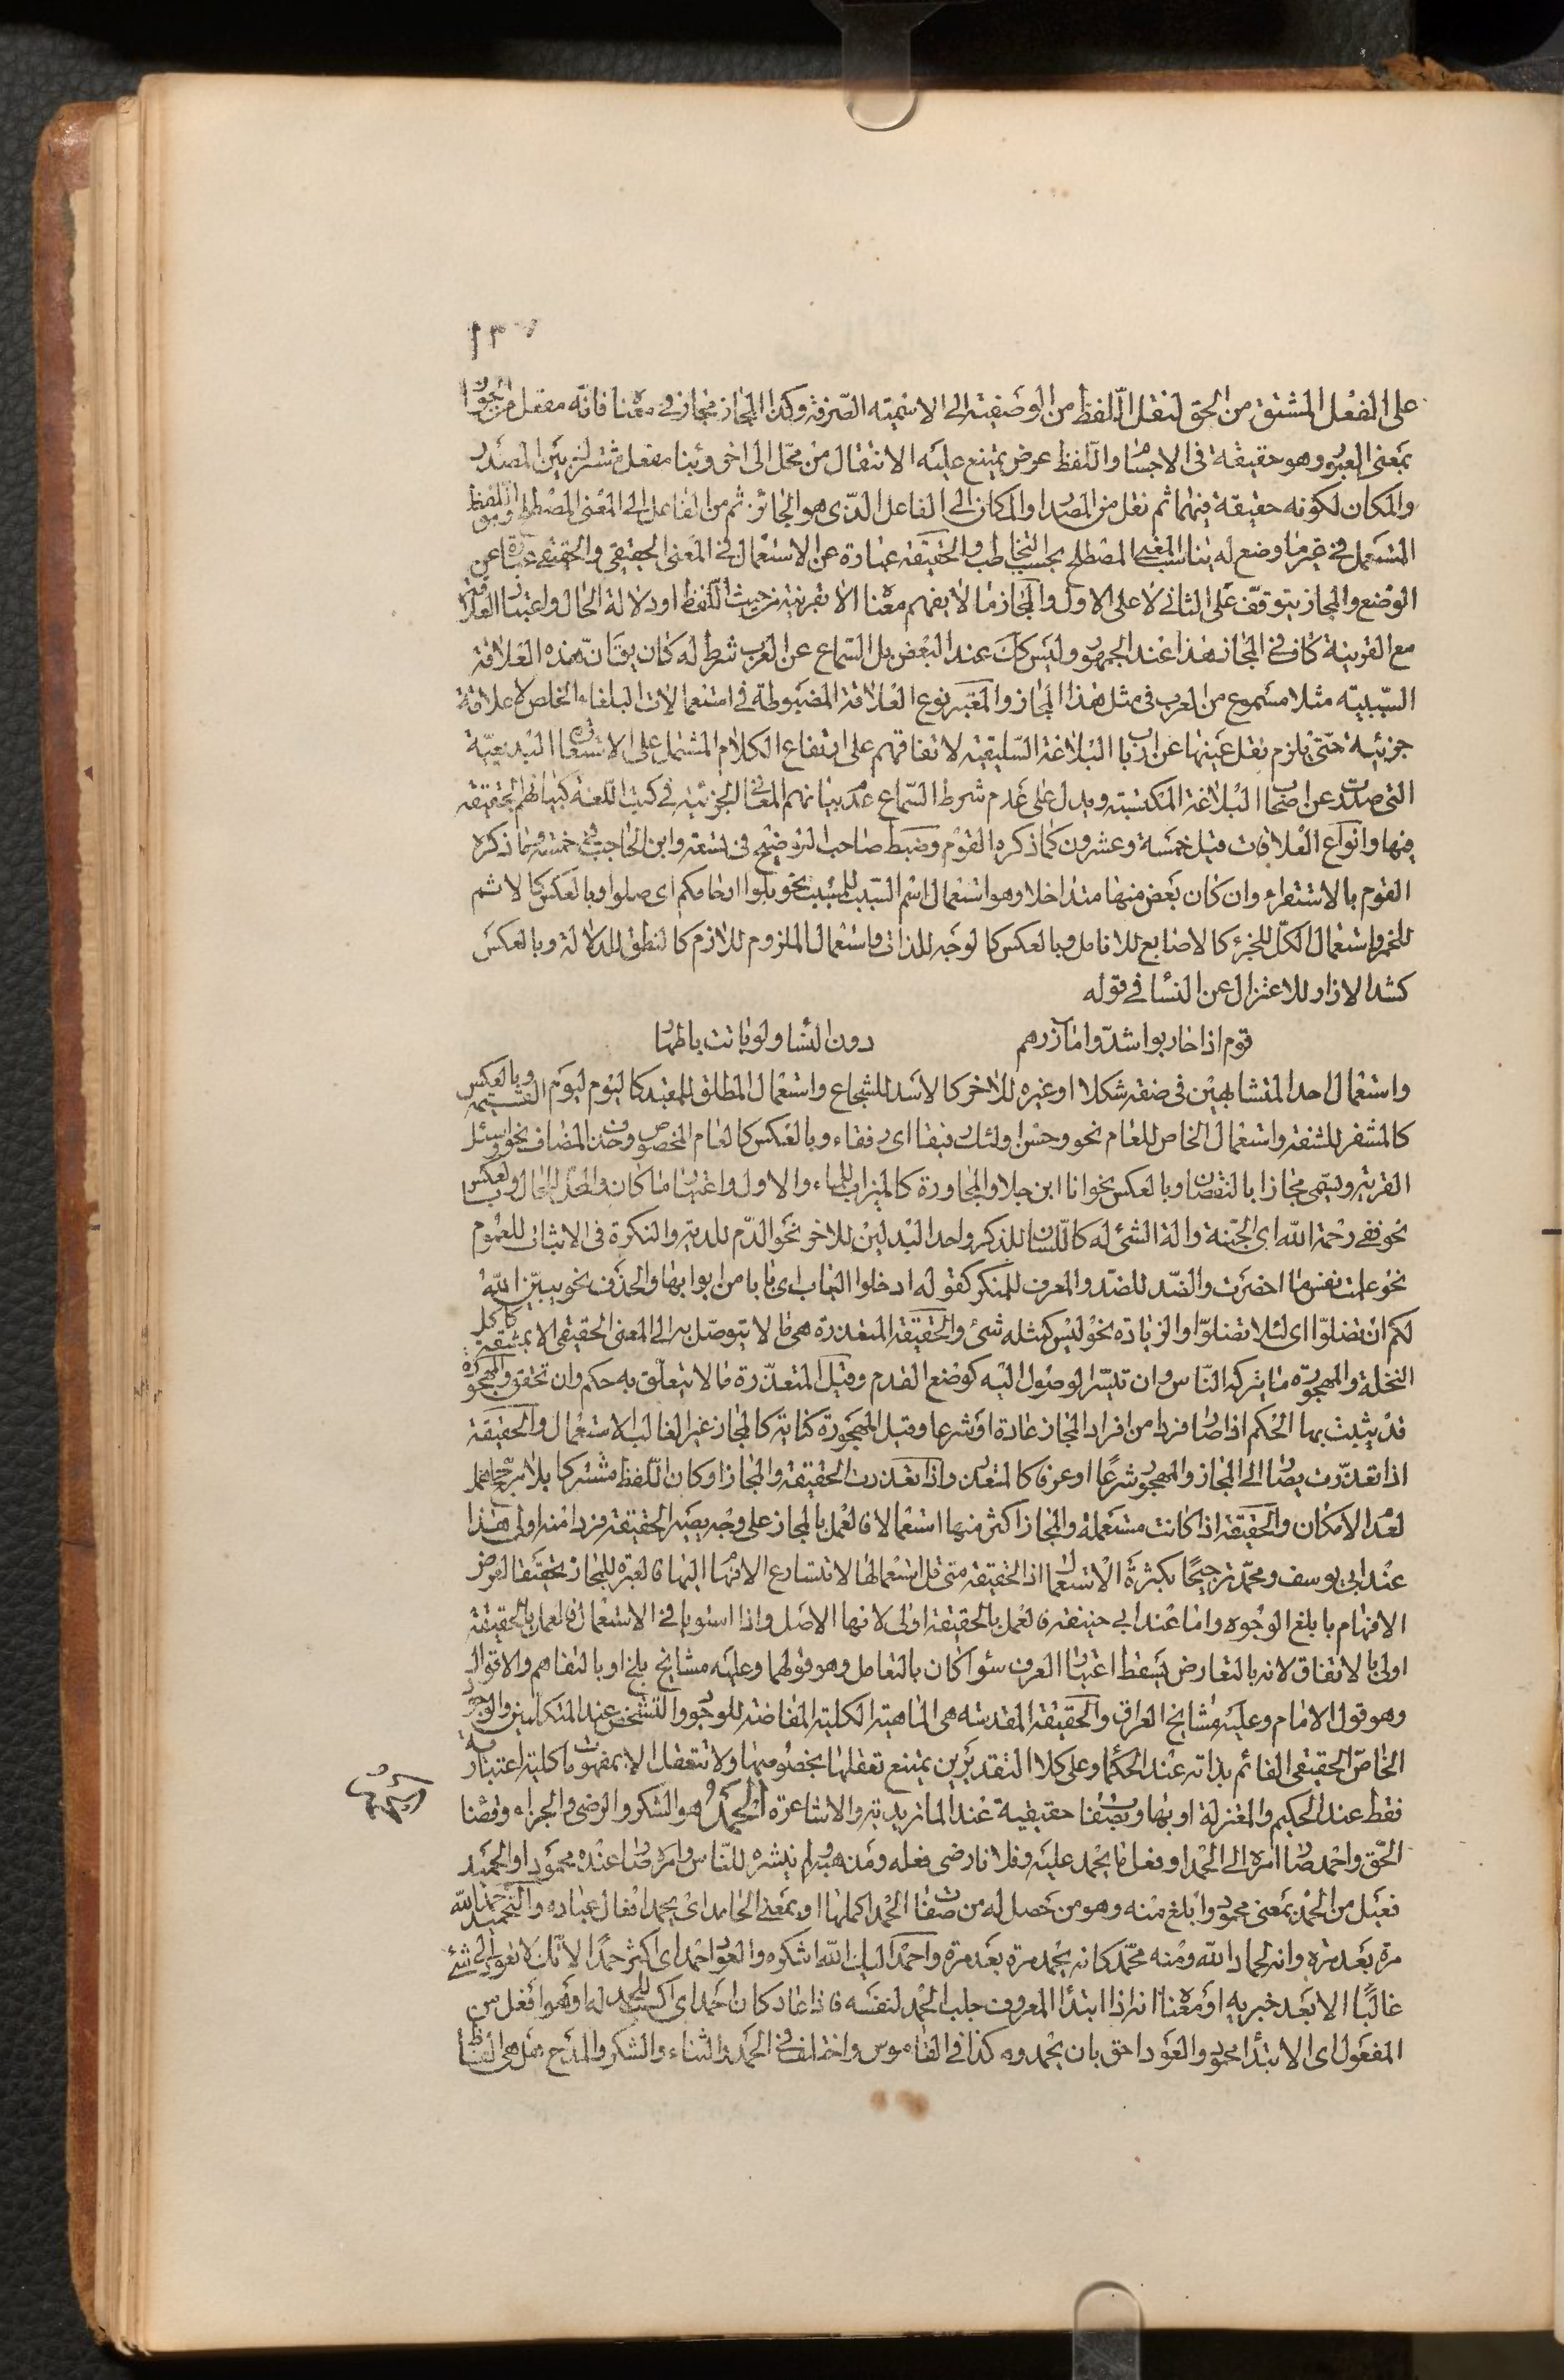 ١٣٧
على الفعل المشتق من الحق لنقل اللفظ من الوصفية الى الاسمية الصرفة وكذا المجاز مجاز في معناه فانّه مفعل من الجواز
بمعنى العبور وهو حقيقة في الاجسام واللفظ عرض يمتنع عليه الانتقال من محل الى اخر وبناء مفعل مشترك بين المصدر
والمكان لكونه حقيقة فيهما ثم نقل من المصدر او المكان الى الفاعل الذى هو الجائز ثم من الفاعل الى المعنى المصطلح وهو اللفظ
المستعمل في غير ما وضع له يناسب المعنى المصطلح بحسب التخاطب والحقيقة عبارة عن الاستعمال في المعنى الحقيقي والحقيقي عبارة عن
الوضع والمجاز يتوقف على الثاني لا على الاول والمجاز ما لا يفهم معناه الا بقرينة من حيث اللفظ او دلالة الحال واعتبار العلاقة
مع القرينة كاف في المجاز هذا عند الجمهور وليس كك عند البعض بل السماع عن العرب شرط له كان يقال ان هذه العلاقة
السببية مثلا مسموع من العرب في مثل هذا المجاز والمعتبر نوع العلاقة المضبوطة في استعمالات البلغاء الخلص لا علاقة
جزئية حتى يلزم نقل عينها عن ارباب البلاغة السليقية لاتفاقهم على ارتفاع الكلام المشتمل على الاستعارة البديعية
التي صدرت عن اصحاب البلاغة المكتسبة ويدل على عدم شرط السماع عدم بيانهم المعاني الجزئية في كتب اللغة كبيانهم الحقيقة
فيها وانواع العلاقات قيل خمسة وعشرون كما ذكره القوم وضبط صاحب التوضيح في تسعة وابن الحاجب في خمسة ومما ذكره
القوم بالاستقراء وان كان بعض منها متداخلا وهو استعمال اسم السبب للمسبب نحو بلوا ارحامكم اى صلوا وبالعكس كالاثم
للخمر واستعمال الكل للجزء كالاصابع للانامل وبالعكس كالوجه للذات واستعمال الملزوم للازم كالنطق للدلالة وبالعكس
كشد الازار للاعتزال عن النساء في قوله
قوم اذا حاربوا شدّوا مآزرهم دون النساء ولو باتت باطهار
واستعمال احد المتشابهين في صفة شكلا او غيره للاخر كالاسد للشجاع واستعمال المطلق للمقيد كاليوم ليوم القيمة وبالعكس
كالمشفر للشفة واستعمال الخاص للعام نحو وحسن اولئك رفيقا اى رفقاء وبالعكس كالعام المخصوص وحذف المضاف نحو واسئل
القرية ويسمى مجازا بالنقصان وبالعكس نحو انا ابن جلا والمجاورة كالميزاب للماء والاول واعتبار ما كان والمحل للحال وبالعكس
نحو ففى رحمة الله اى الجنة والة الشئ له كاللسان للذكر واحد البدلين للاخر نحو الدّم للدية والنكرة في الاثبات للعموم
نحو علمت نفس ما احضرت والضد للضد والمعرف للمنكر كقوله ادخلوا الباب اى بابا من ابوابها والحذف نحو يبيّن الله
لكم ان تضلوا اى لئلا تضلوا والزيادة نحو ليس كمثله شئ والحقيقة المتعذرة هى ما لا يتوصل به الى المعنى الحقيقي الا بمشقة كاكل
النخلة والمهجورة ما يتركه الناس وان تيسر الوصول اليه كوضع القدم وقيل المتعذرة ما لا يتعلق به حكم وان تحقق والمهجورة
قد يثبت بها الحكم اذا صار فردا من افراد المجاز عادة او شرعا وقيل المهجورة كناية كالمجاز غير الغالب الاستعمال والحقيقة
اذا تعذرت يصار الى المجاز والمهجور شرعا او عرفا كالمتعذر واذا تعذرت الحقيقة والمجاز او كان اللفظ مشتركا بلا مرجح اهمل
لعدم الامكان والحقيقة اذا كانت مستعملة والمجاز اكثر منها استعمالا فالعمل بالمجاز على وجه يصير الحقيقة فردا منه اولى هذا
عند ابي يوسف ومحمد ترجيحا بكثرة الاستعمال اذ الحقيقة متى قل استعمالها لا تتسارع الافهام اليها فالعبرة للمجاز تحقيقا لغرض
الافهام بابلغ الوجوه واما عند ابي حنيفة فالعمل بالحقيقة اولى لانها الاصل واذا استويا في الاستعمال فالعمل بالحقيقة
اولى بالاتفاق لانه بالتعارض يسقط اعتبار العرف سواء كان بالتعامل وهو قولهما وعليه مشايخ بلخ او بالتفاهم والاقوال
وهو قول الامام وعليه مشايخ العراق والحقيقة المقدسة هى الماهية الكلية المفاضة للوجود والتشخص عند المتكلمين والوجود
الخاص الحقيقي القائم بذاته عند الحكماء وعلى كلا التقديرين يمتنع تعقلها بخصوصها ولا تتعقل الا بمفهومات كلية اعتبارية
فقط عند الحكيم والمعتزلة او بها وبصفات حقيقية عند الماتريدية والاشاعرة الحمد هو الشكر والرضى والجزاء وقضاء
الحمد
الحق واحمد صار امره الى الحمد او فعل ما يحمد عليه وفلانا رضى فعله ومذهبه ولم ينشره للناس وامره صار عنده محمودا والحميد
فعيل من الحمد بمعنى محمود وابلغ منه وهو من حصل له من صفات الحمد اكملها او بمعنى الحامد اى يحمد افعال عباده والتحميد حمد الله
مرة بعد مرة وانه لحماد الله ومنه محمّد كانه يحمد مرة بعد مرة واحمد اليك الله اشكره والعود احمد اى اكثر حمدا لانك لا تعود الى شئ
غالبًا الا بعد خبرته او معناه انه اذا ابتدأ المعروف جلب الحمد لنفسه فاذا عاد كان احمد اى اكسب للحمد له او هو افعل من
المفعول اى الابتداء محمود والعود احق بان يحمدوه كذا في القاموس واختلف في الحمد والثناء والشكر والمدح هل هى الفاظ